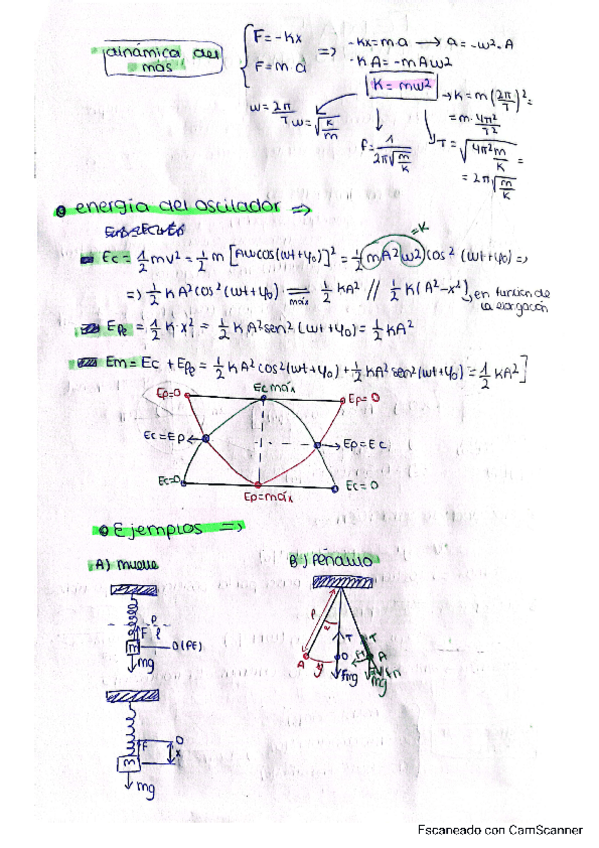 dinámica del
mas
F=-Kx
F=m·a
=> -Kx=m·a → a=-w²·A
-KA=-mAw²
K=mw²
→ K=m(2π/T)²=
=m·4π²/T²
w=2π/T
w=√K/m
f=1/2π√m/K
T=√4π²m/K=
=2π√m/K
energía del oscilador =>
Ec=1/2mv²=1/2m[Awcos(wt+φ0)]²=1/2(mA²w²)cos²(wt+φ0)=>
=K
=> 1/2KA²cos²(wt+φ0) = máx 1/2KA² // 1/2K(A²-x²) en función de
la elongación
Epe=1/2K·x²=1/2KA²sen²(wt+φ0)=1/2KA²
Em=Ec+Epe=1/2KA²cos²(wt+φ0)+1/2KA²sen²(wt+φ0)=1/2KA²]
Ep=0 Ecmáx Ep=0
Ec=Ep Ep=Ec
Ec=0 Ep=máx Ec=0
Ejemplos =>
A) muelle B) Péndulo
F
m O(PE)
mg
T T
A O A
y
mg mg
F O
x
m
mg
Escaneado con CamScanner